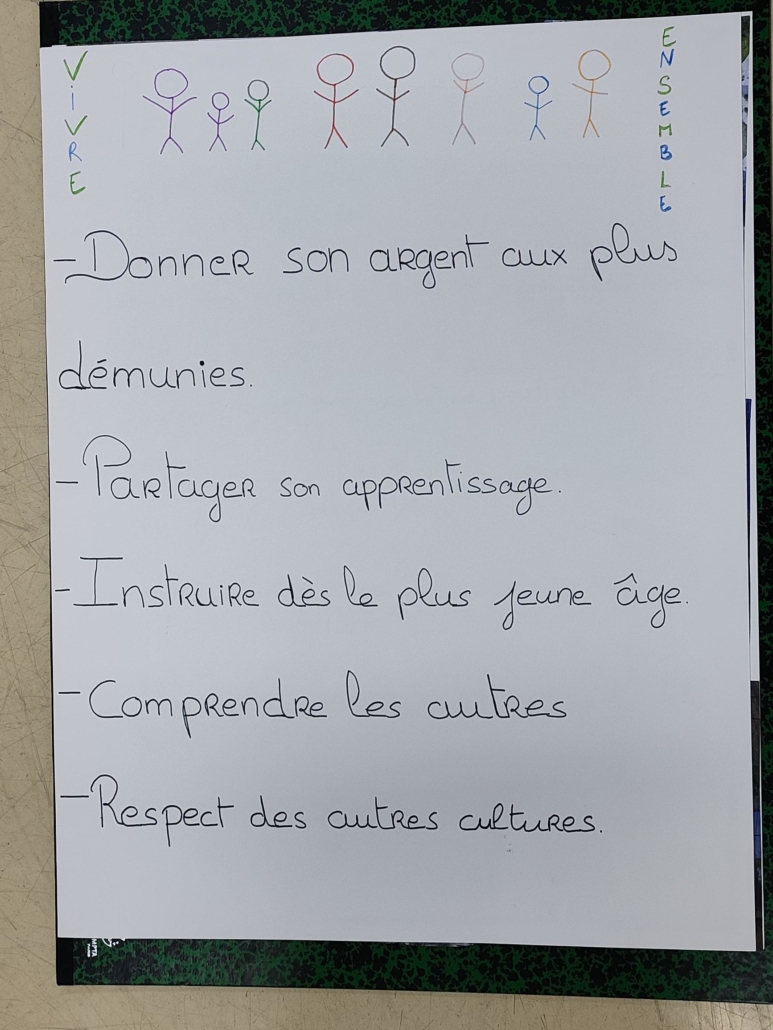 ViVRE
ENSEMBLE
- Donner son argent aux plus
démunies.
- Partager son apprentissage.
- Instruire dès le plus jeune âge.
- Comprendre les autres
- Respect des autres cultures.